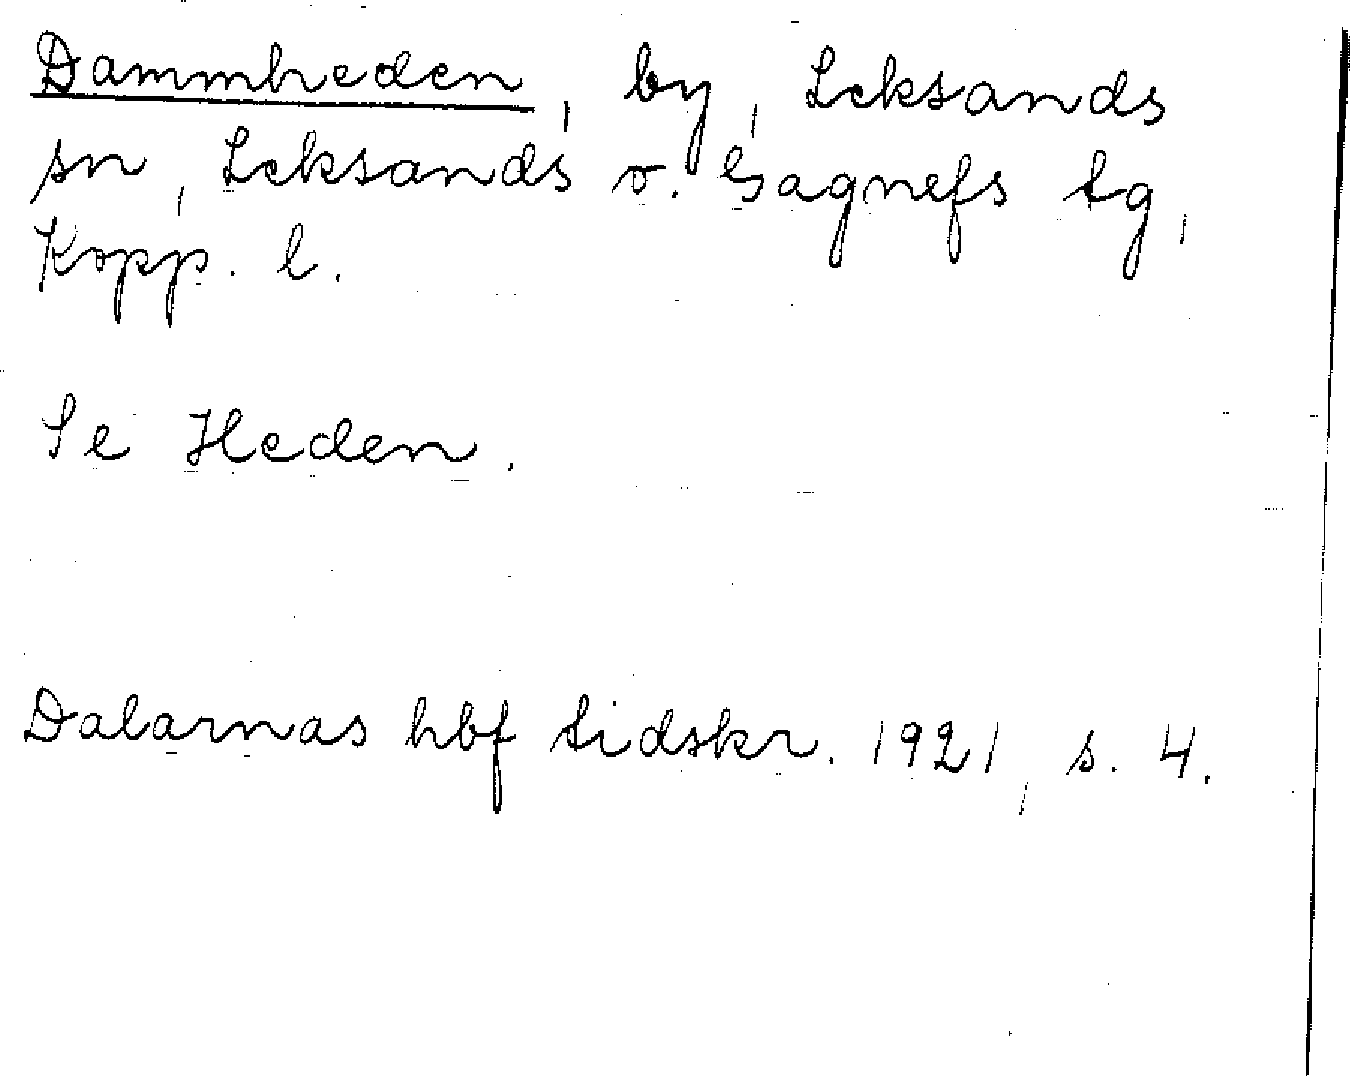 Dammheden, by, Leksands
sn, Leksands o. Gagnefs tg,
Kopp. l.
Se Heden.
Dalarnas hbf tidskr. 1921, s. 4.